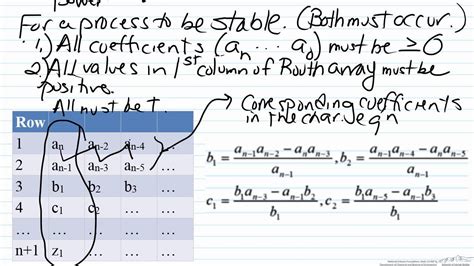 power
For a process to be stable. (Both must occur.)
1.) All coefficients (aₙ ... a₀) must be ≥ 0
2.) All values in 1st column of Routh array must be
positive.
All must be +.
→ Corresponding coefficients
in the char. eqn
Row
1 aₙ aₙ₋₂ aₙ₋₄ ...
2 aₙ₋₁ aₙ₋₃ aₙ₋₅ ...
3 b₁ b₂ b₃ ...
4 c₁ c₂ ... ...
... ... ... ... ...
n+1 z₁
b₁ = (aₙ₋₁aₙ₋₂ − aₙaₙ₋₃) / aₙ₋₁, b₂ = (aₙ₋₁aₙ₋₄ − aₙaₙ₋₅) / aₙ₋₁
c₁ = (b₁aₙ₋₃ − aₙ₋₁b₂) / b₁, c₂ = (b₁aₙ₋₅ − aₙ₋₁b₃) / b₁